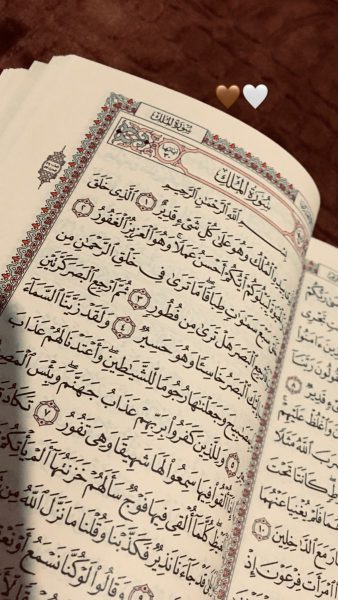 سُورَةُ المُلْكِ
سُورَةُ المُلْكِ
بِسْمِ اللَّهِ الرَّحْمَٰنِ الرَّحِيمِ
الْمُلْكُ وَهُوَ عَلَىٰ كُلِّ شَيْءٍ قَدِيرٌ ١ الَّذِي خَلَقَ
لِيَبْلُوَكُمْ أَيُّكُمْ أَحْسَنُ عَمَلًا وَهُوَ الْعَزِيزُ الْغَفُورُ ٢
سَبْعَ سَمَٰوَٰتٍ طِبَاقًا مَّا تَرَىٰ فِي خَلْقِ الرَّحْمَٰنِ مِن
فَارْجِعِ الْبَصَرَ هَلْ تَرَىٰ مِن فُطُورٍ ٣ ثُمَّ ارْجِعِ الْبَصَرَ كَرَّتَيْنِ
إِلَيْكَ الْبَصَرُ خَاسِئًا وَهُوَ حَسِيرٌ ٤ وَلَقَدْ زَيَّنَّا السَّمَاءَ
بِمَصَٰبِيحَ وَجَعَلْنَٰهَا رُجُومًا لِّلشَّيَٰطِينِ وَأَعْتَدْنَا لَهُمْ عَذَابَ
وَلِلَّذِينَ كَفَرُوا بِرَبِّهِمْ عَذَابُ جَهَنَّمَ وَبِئْسَ الْمَصِيرُ
إِذَا أُلْقُوا فِيهَا سَمِعُوا لَهَا شَهِيقًا وَهِيَ تَفُورُ ٧ تَكَادُ
كُلَّمَا أُلْقِيَ فِيهَا فَوْجٌ سَأَلَهُمْ خَزَنَتُهَا أَلَمْ يَأْتِكُمْ
قَدْ جَاءَنَا نَذِيرٌ فَكَذَّبْنَا وَقُلْنَا مَا نَزَّلَ اللَّهُ مِن
وَقَالُوا لَوْ كُنَّا نَسْمَعُ أَوْ نَعْقِلُ
قَدِيرٌ ٨
وَاغْلُظْ عَلَيْهِمْ
اللَّهُ مَثَلًا
كَانَتَا تَحْتَ
فَلَمْ يُغْنِيَا عَنْهُمَا
مَعَ الدَّاخِلِينَ ١٠
امْرَأَتَ فِرْعَوْنَ إِذْ